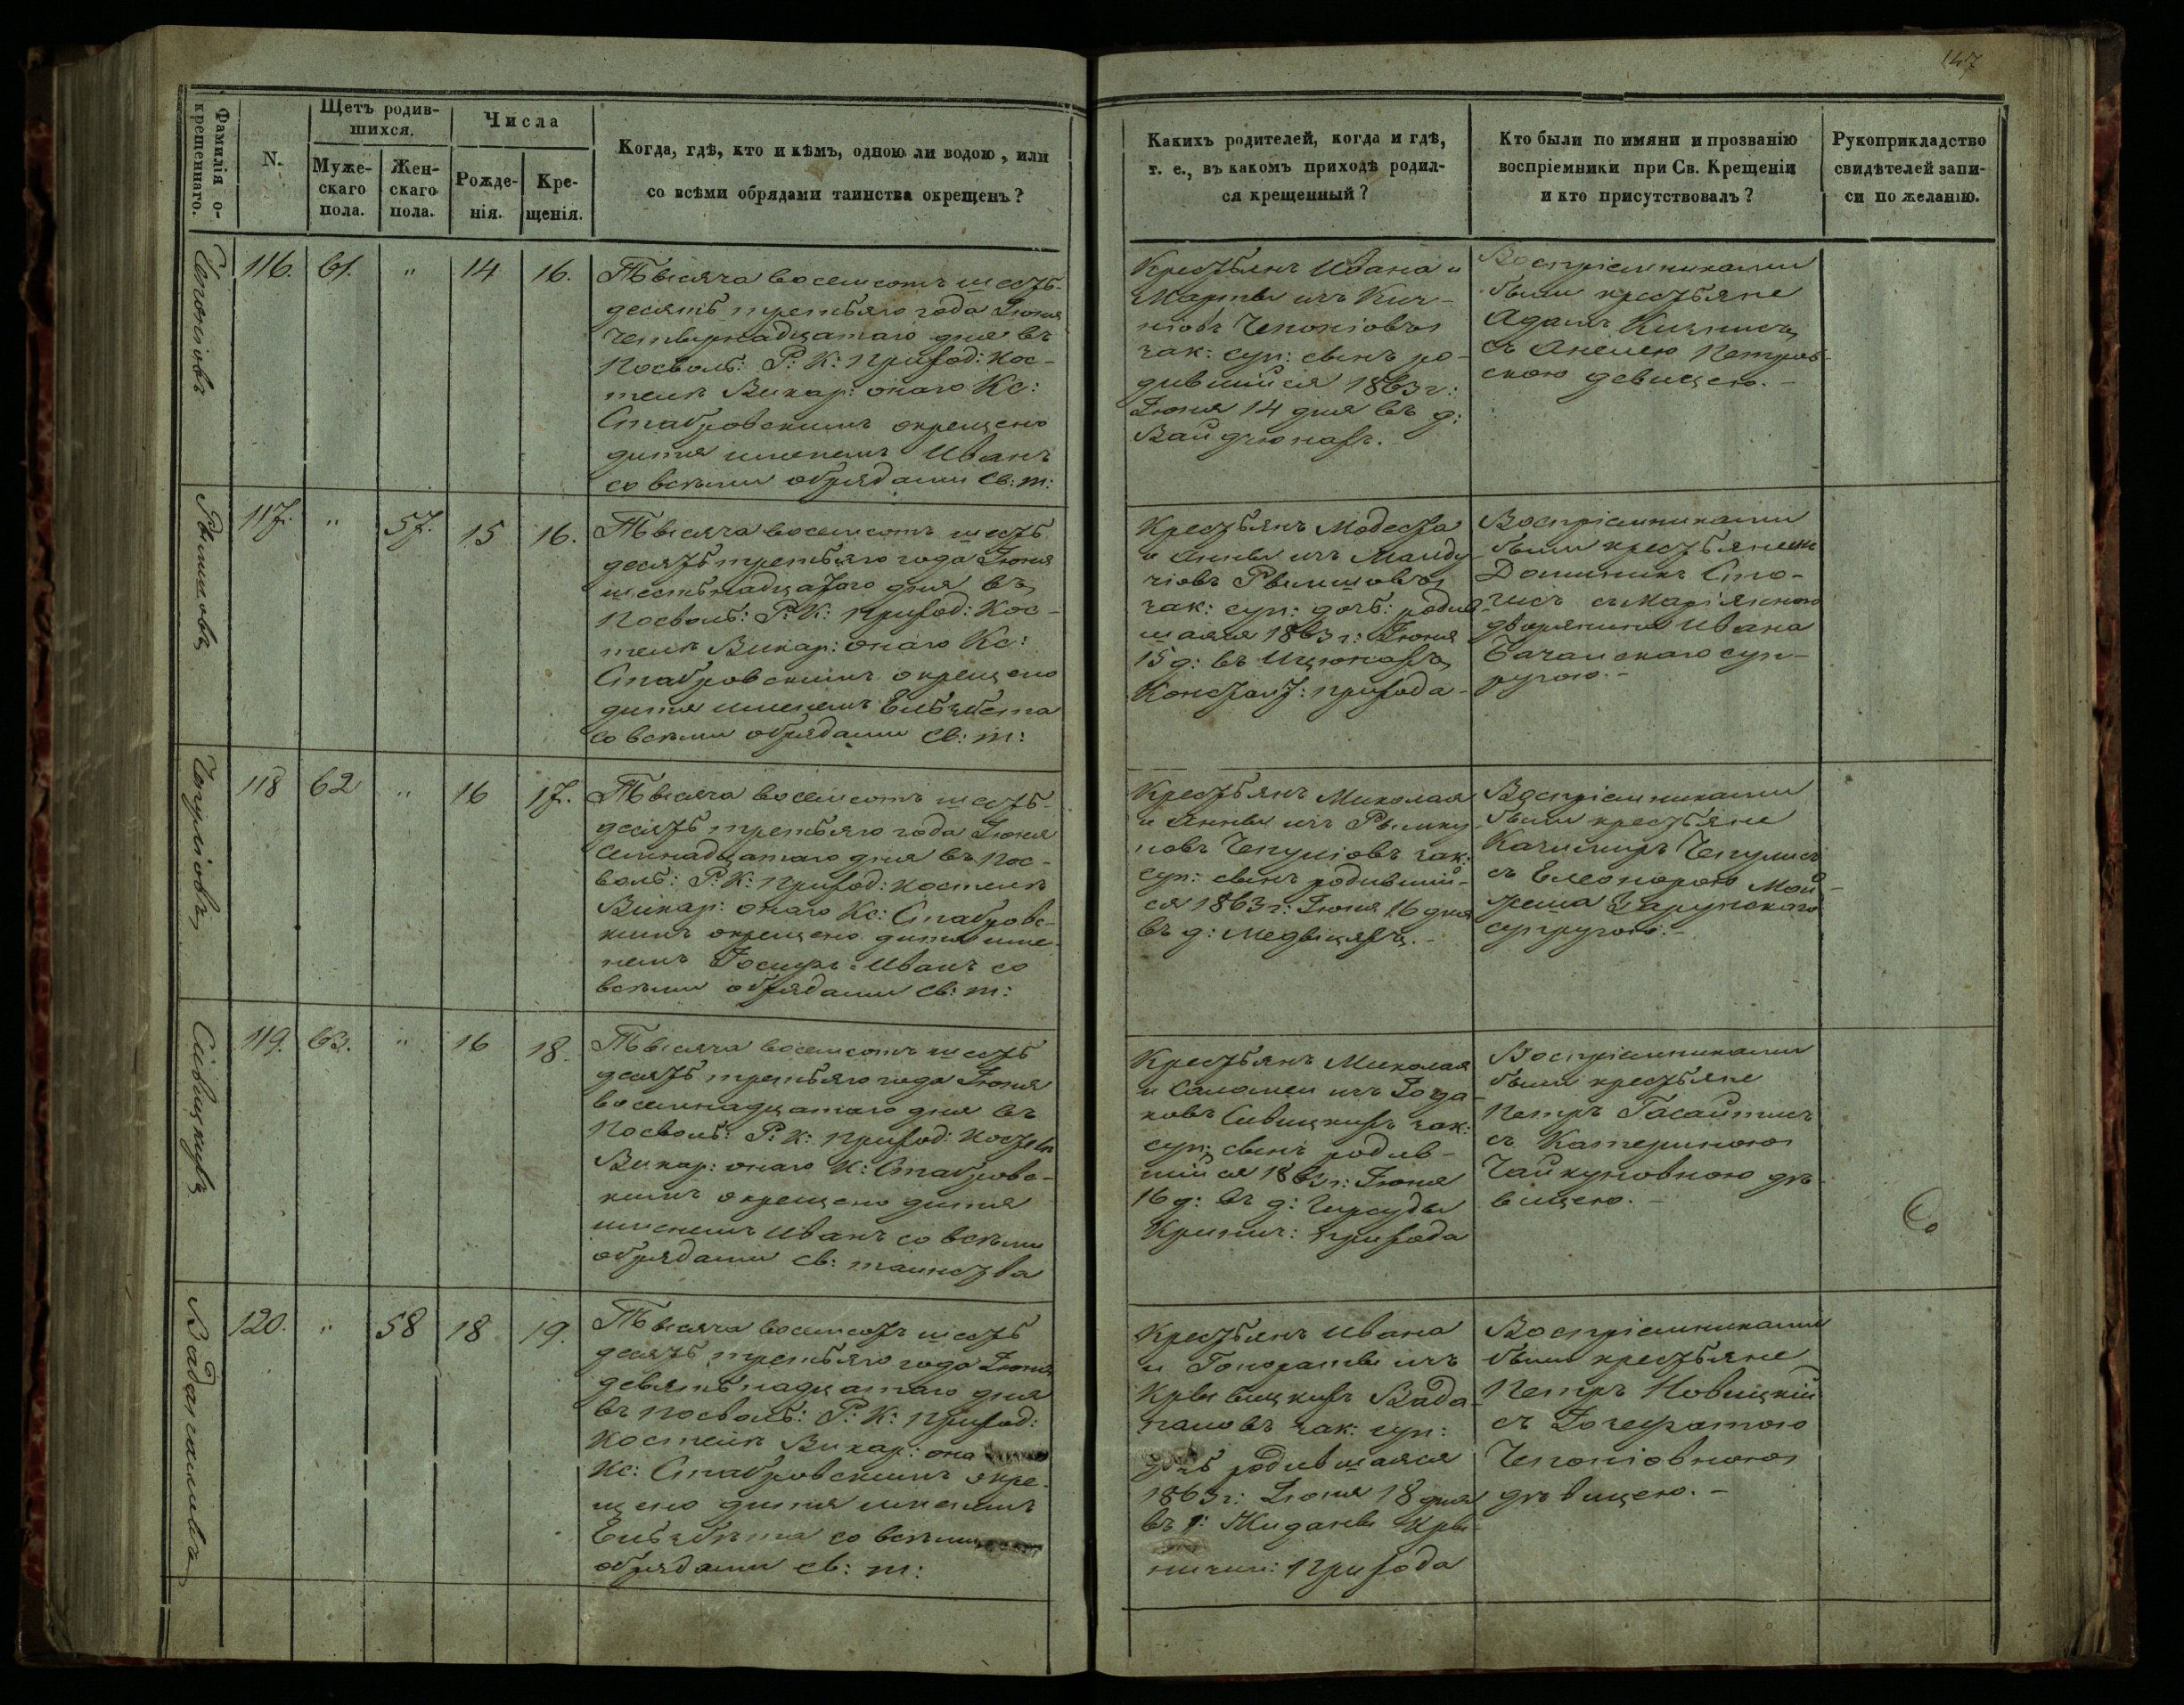 147
Фамилія о-
крещеннаго.
N.
Щетъ родив-
шихся.
Муже-
скаго
пола.
Жен-
скаго
пола.
Числа
Рожде-
нія.
Кре-
щенія.
Когда, гдѣ, кто и кѣмъ, одною ли водою, или
со всѣми обрядами таинства окрещенъ?
Какихъ родителей, когда и гдѣ,
т. е., въ какомъ приходѣ родил-
ся крещенный?
Кто были по имяни и прозванію
воспріемники при Св. Крещеніи
и кто присутствовалъ?
Рукоприкладство
свидѣтелей запи-
си по желанію.
Чепонiовъ
116. 61. " 14 16.
Тысяча восемсотъ шесть-
десятъ третьяго года Іюня
четырнадцатаго дня въ
Посволь: Р: К: Приход: Кос-
телѣ Викар: онаго Кс:
Стабровскимъ окрещено
дитя именемъ Иванъ
со всѣми обрядами св: т:
Крестьянъ Ивана и
Марты изъ Кич-
ніовъ Чепоніовъ
зак: суп: сынъ ро-
дившійся 1863 г:
Іюня 14 дня въ д:
Вайдчюнахъ.
Воспріемниками
были крестьяне
Адамъ
съ Анелею Петров-
скою девицею.
Рымшовъ
117. " 57. 15 16.
Тысяча восемсотъ шесть
десять третьяго года Іюня
шестьнадцатого дня въ
Посволь: Р: К: Приход: Кос-
телѣ Викар: онаго Кс:
Стабровскимъ окрещено
дитя именемъ Ельзбета
со всѣми обрядами св: т:
Крестьянъ Модеста
и Анны изъ Манду
Рымшовъ
зак: суп: дочь: родив
шаяся 1863 г: Іюня
15 д: въ
Констант: прихода
Воспріемниками
были крестьяне
Доминикъ Сто-
съ Маріянною
дворянина Ивана
суп-
ругою.
Чопуліовъ
118 62 " 16 17.
Тысяча восемсотъ шесть-
десять третьяго года Іюня
семнадцатаго дня въ Пос-
воль: Р: К: Приход: Костелѣ
Викар: онаго Кс: Стабровс-
кимъ окрещено дитя име-
немъ Іосифъ-Иванъ со
всѣми обрядами св: т:
Крестьянъ Миколая
и Анны изъ Рымку
новъ Чепуліовъ зак:
суп: сынъ родившій-
ся 1863 г: Іюня 16 дня
въ д:
Воспріемниками
были крестьяне
Казимиръ Чепулисъ
съ Елеонорою Мой
супругою.
Сивицкихъ
119. 63. " 16 18.
Тысяча восемсотъ шесть
десять третьяго года Іюня
восемнадцатаго дня въ
Посволь: Р: К: Приход: Костелѣ
Викар: онаго К: Стабровс-
кимъ окрещено дитя
именемъ Иванъ со всѣми
обрядами св: таинства
Крестьянъ Миколая
и Саломеи изъ
Сивицкихъ зак:
суп: сынъ родив-
шійся 1863 г: Іюня
16 д: въ д:
Кринич: прихода
Воспріемниками
были крестьяне
Петръ
съ Катериною
дѣ-
вицею.
120. " 58 18 19.
Тысяча восемсотъ шесть
десять третьяго года Іюня
девятьнадцатаго дня
въ Посволь: Р: К: Приход:
Костелѣ Викар: она
Кс: Стабровскимъ окре-
щено дитя именемъ
Ельзбѣта со всѣми
обрядами св: т:
Крестьянъ Ивана
и Гонораты изъ
Крывицкихъ Вада
зак: суп:
дочь родившаяся
1863 г: Іюня 18 дня
въ
прихода
Воспріемниками
были крестьяне
Петръ Новицкій
съ
Чепоніовною
дѣвицею.